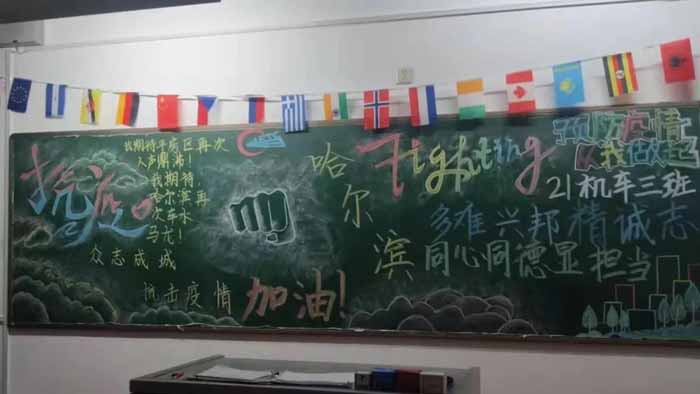 抗疫
我期待平房区再次
人声鼎沸!
我期待,
哈尔滨再
次车水
马龙!
众志成城
抗击疫情
加油!
哈尔滨
Fighting
预防疫情
从我做起
21机车三班
多难兴邦精诚志
同心同德显担当